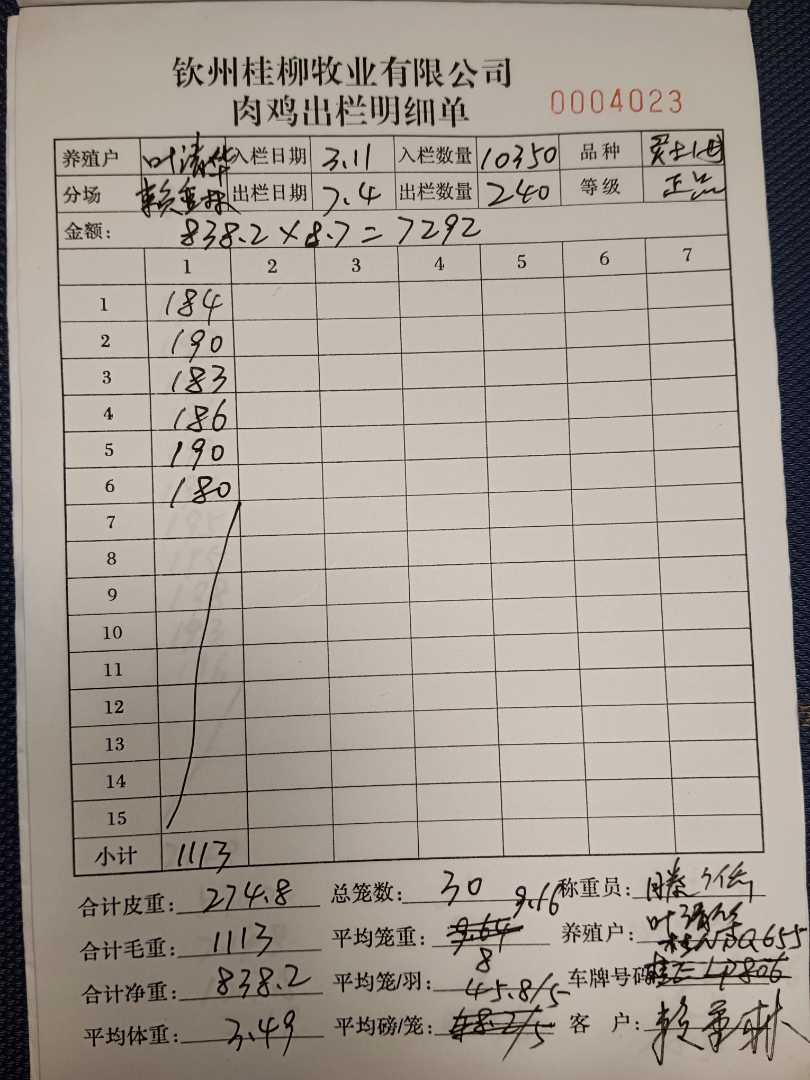 钦州桂柳牧业有限公司
肉鸡出栏明细单 0004023
养殖户 叶清华 入栏日期 3.11 入栏数量 10350 品种
分场 出栏日期 7.4 出栏数量 240 等级 正品
金额: 838.2×8.7=7292
1 2 3 4 5 6 7
1 184
2 190
3 183
4 186
5 190
6 180
7
8
9
10
11
12
13
14
15
小计 1113
合计皮重: 274.8 总笼数: 30 称重员:
合计毛重: 1113 平均笼重: 9.64 9.16 养殖户: 叶清华
合计净重: 838.2 平均笼/羽: 8 车牌号码: NDQ655
平均体重: 3.49 平均磅/笼: 48.2/5 45.8/5 客 户: